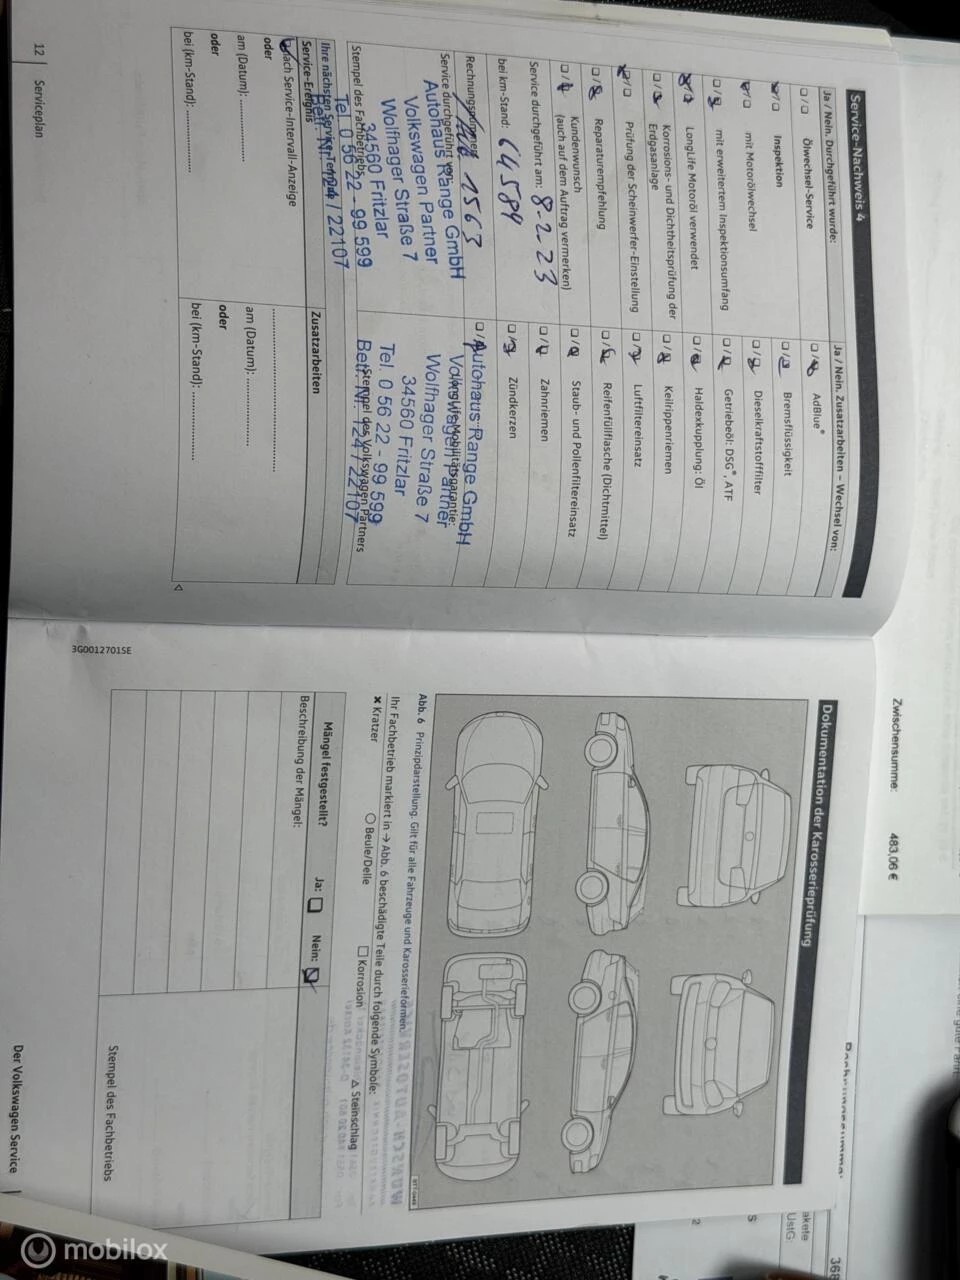 Service-Nachweis 4
Ja / Nein. Durchgeführt wurde:
Ölwechsel-Service
Inspektion
mit Motorölwechsel
mit erweitertem Inspektionsumfang
LongLife Motoröl verwendet
Korrosions- und Dichtheitsprüfung der
Erdgasanlage
Prüfung der Scheinwerfer-Einstellung
Reparaturempfehlung
Kundenwunsch
(auch auf dem Auftrag vermerken)
Service durchgeführt am: 8-2-23
bei km-Stand: 64589
Rechnungsnummer: 1563
Service durchgeführt von:
Autohaus Range GmbH
Volkswagen Partner
Wolfhager Straße 7
34560 Fritzlar
Tel. 0 56 22 - 99 599
Betr. Nr. 124 / 22107
Stempel des Fachbetriebs
Ja / Nein. Zusatzarbeiten – Wechsel von:
AdBlue®
Bremsflüssigkeit
Dieselkraftstofffilter
Getriebeöl: DSG®, ATF
Haldexkupplung: Öl
Keilrippenriemen
Luftfiltereinsatz
Reifenfüllflasche (Dichtmittel)
Staub- und Pollenfiltereinsatz
Zahnriemen
Zündkerzen
Autohaus Range GmbH
Volkswagen Partner
Wolfhager Straße 7
34560 Fritzlar
Tel. 0 56 22 - 99 599
Betr. Nr. 124 / 22107
Stempel des Volkswagen Partners
Service-Ereignis
Nach Service-Intervall-Anzeige
oder
am (Datum):
oder
bei (km-Stand):
Zusatzarbeiten
am (Datum):
oder
bei (km-Stand):
12 | Serviceplan
Zwischensumme: 483,06 €
Dokumentation der Karosserieprüfung
Abb. 6 Prinzipdarstellung. Gilt für alle Fahrzeuge und Karosserieformen.
Ihr Fachbetrieb markiert in → Abb. 6 beschädigte Teile durch folgende Symbole:
✖ Kratzer ○ Beule/Delle □ Korrosion △ Steinschlag
Mängel festgestellt? Ja: Nein:
Beschreibung der Mängel:
Stempel des Fachbetriebs
3G0012701SE
Der Volkswagen Service
mobilox